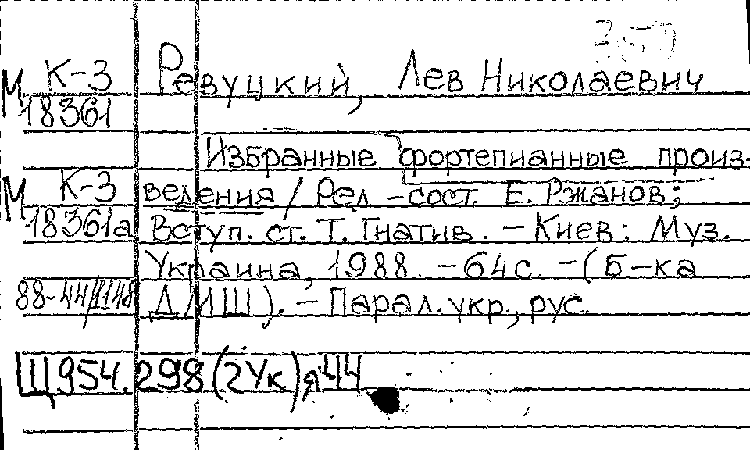 М К-3 Ревуцкий, Лев Николаевич
18361
Избранные фортепианные произ-
М К-3 ведения / Ред.-сост. Е. Ржанов;
18361а Вступ. ст. Т. Гнатив. - Киев: Муз.
Украина, 1988. - 64 с. - (Б-ка
ДМШ). - Парал. укр., рус.
Щ954.298(2Ук)я44